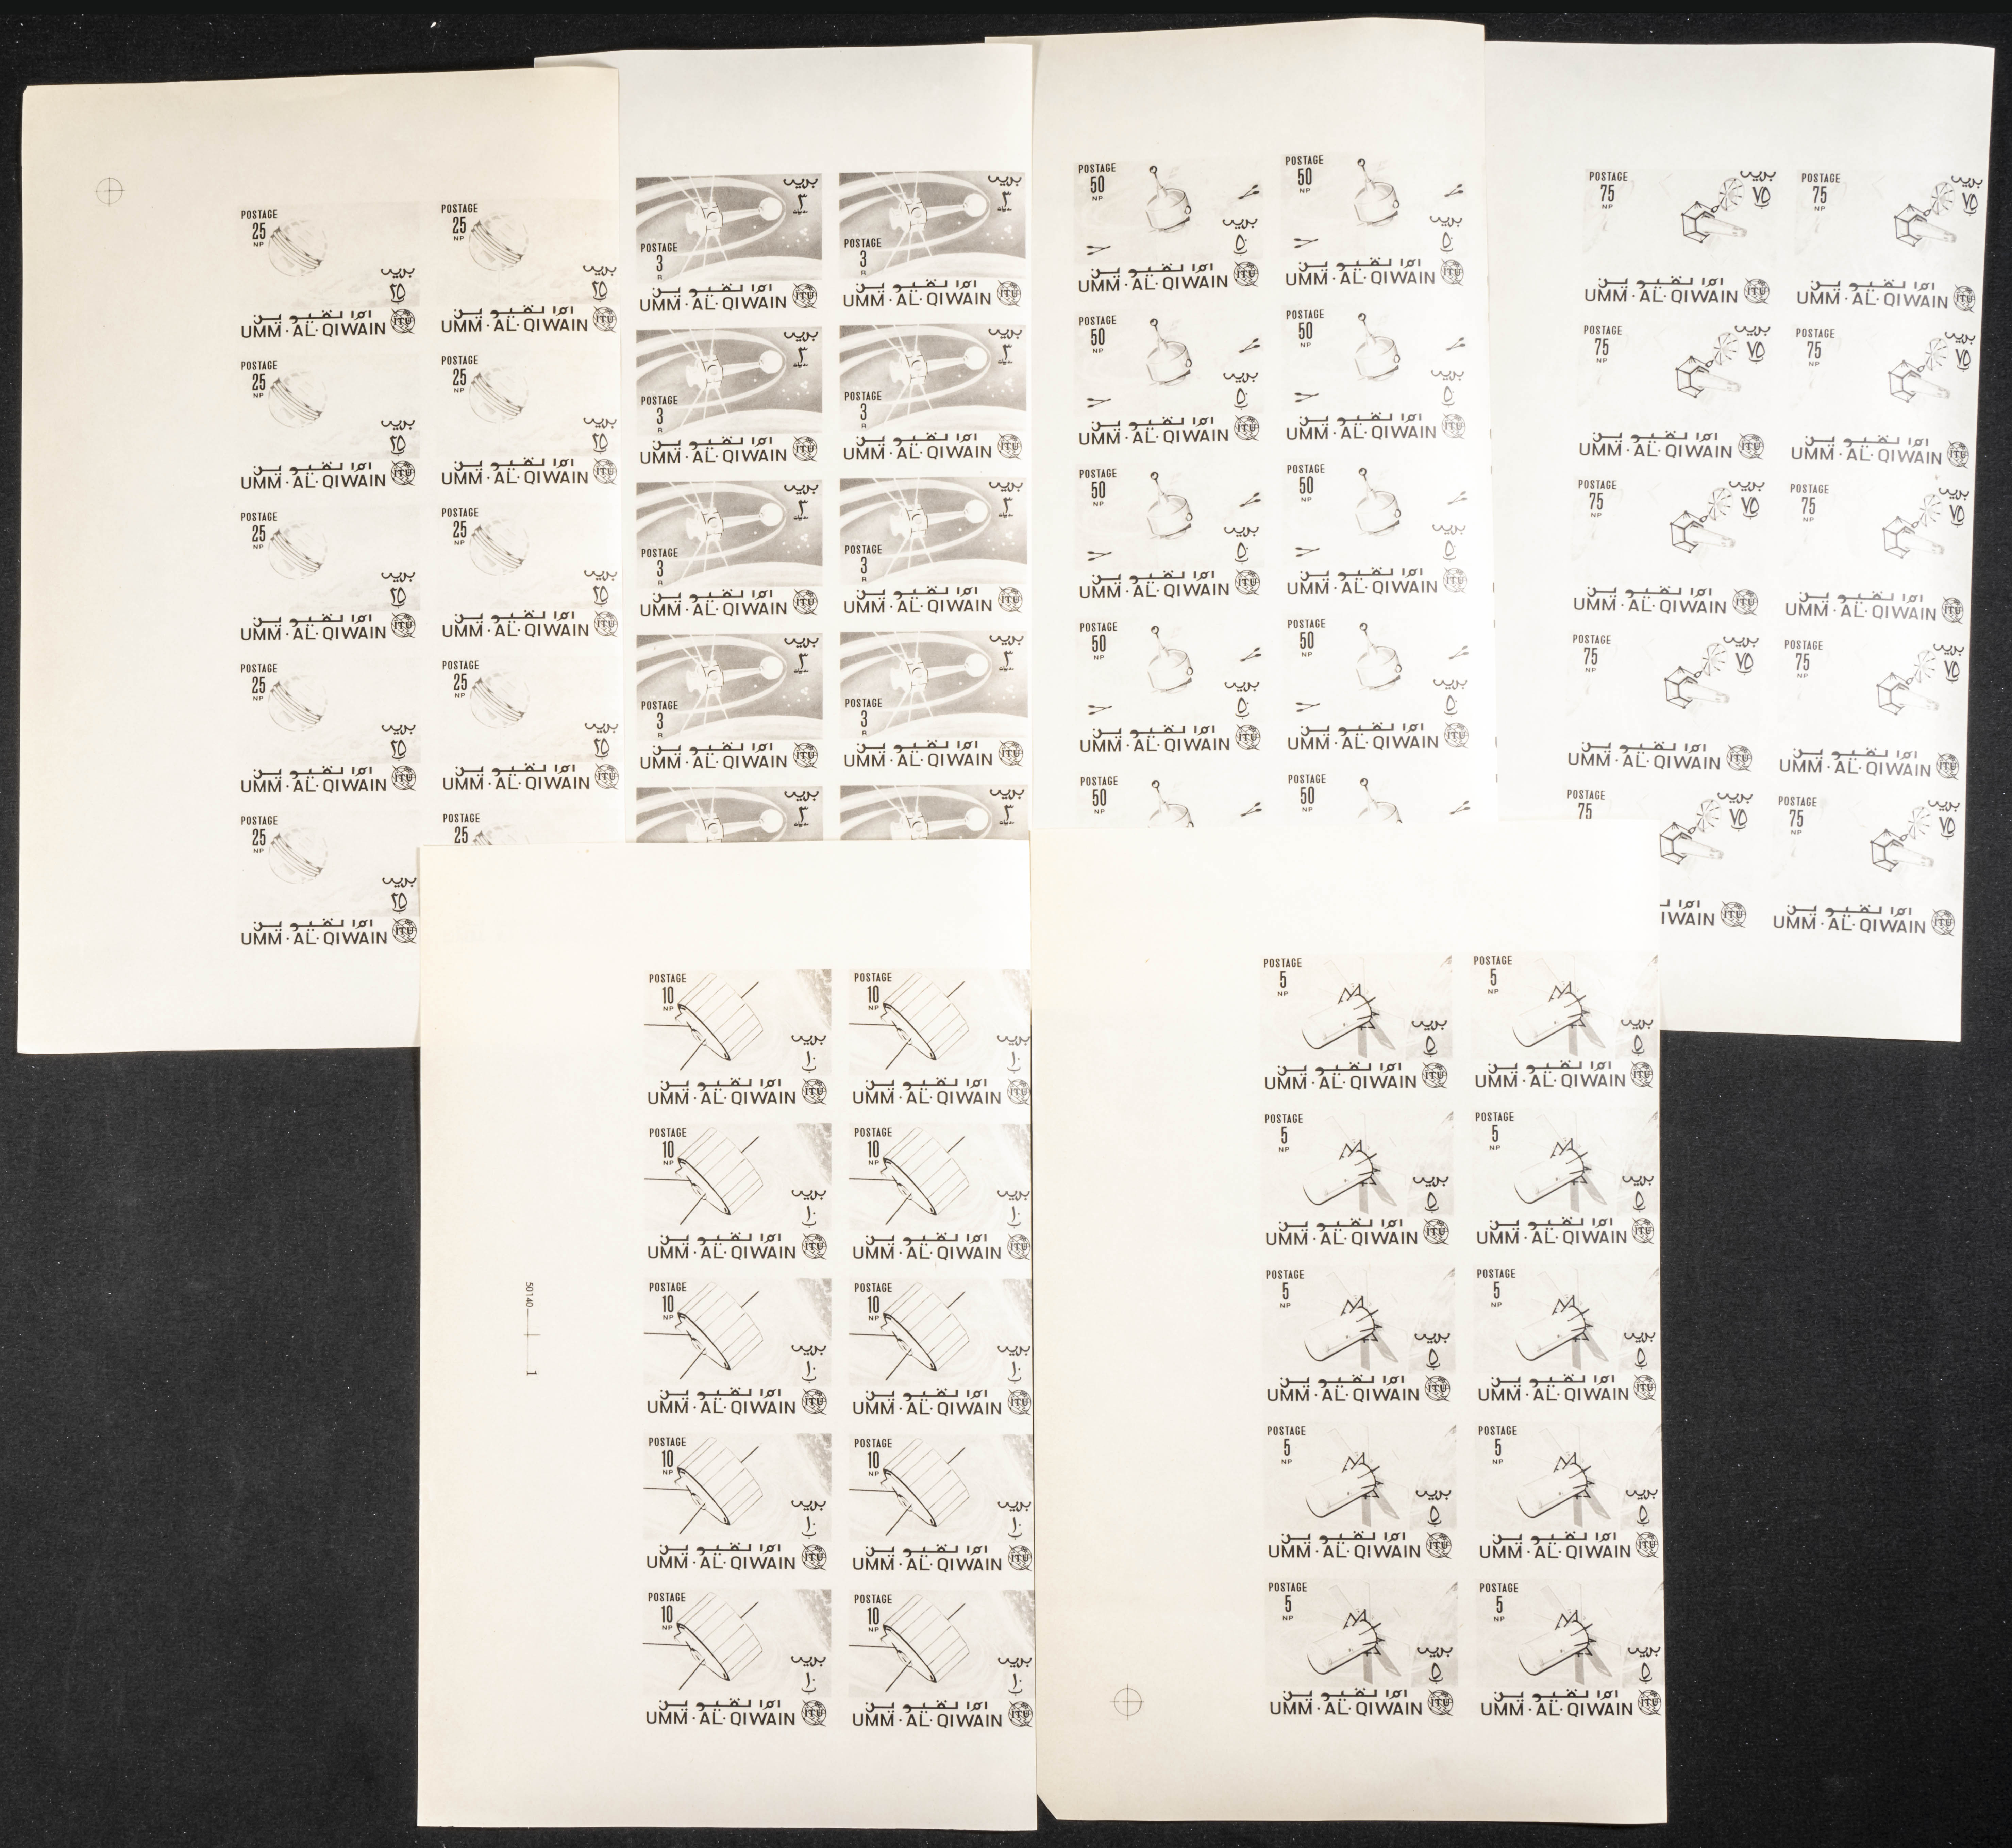 POSTAGE POSTAGE
25 25
NP NP
بريد بريد
٢٥ ٢٥
ام القيوين ام القيوين
UMM·AL·QIWAIN ITU UMM·AL·QIWAIN ITU
POSTAGE POSTAGE
25 25
NP NP
بريد بريد
٢٥ ٢٥
ام القيوين ام القيوين
UMM·AL·QIWAIN ITU UMM·AL·QIWAIN ITU
POSTAGE POSTAGE
25 25
NP NP
بريد بريد
٢٥ ٢٥
ام القيوين ام القيوين
UMM·AL·QIWAIN ITU UMM·AL·QIWAIN ITU
POSTAGE POSTAGE
25 25
NP NP
بريد بريد
٢٥ ٢٥
ام القيوين ام القيوين
UMM·AL·QIWAIN ITU UMM·AL·QIWAIN ITU
POSTAGE POSTAGE
25 25
NP
بريد
٢٥
ام القيوين
UMM·AL·QIWAIN ITU
بريد بريد
٣ ٣
POSTAGE POSTAGE
3 3
R R
ام القيوين ام القيوين
UMM·AL·QIWAIN ITU UMM·AL·QIWAIN ITU
بريد بريد
٣ ٣
POSTAGE POSTAGE
3 3
R R
ام القيوين ام القيوين
UMM·AL·QIWAIN ITU UMM·AL·QIWAIN ITU
بريد بريد
٣ ٣
POSTAGE POSTAGE
3 3
R R
ام القيوين ام القيوين
UMM·AL·QIWAIN ITU UMM·AL·QIWAIN ITU
بريد بريد
٣ ٣
POSTAGE POSTAGE
3 3
R R
ام القيوين ام القيوين
UMM·AL·QIWAIN ITU UMM·AL·QIWAIN ITU
بريد بريد
٣ ٣
POSTAGE POSTAGE
50 50
NP NP
بريد بريد
٥٠ ٥٠
ام القيوين ام القيوين
UMM·AL·QIWAIN ITU UMM·AL·QIWAIN ITU
POSTAGE POSTAGE
50 50
NP NP
بريد بريد
٥٠ ٥٠
ام القيوين ام القيوين
UMM·AL·QIWAIN ITU UMM·AL·QIWAIN ITU
POSTAGE POSTAGE
50 50
NP NP
بريد بريد
٥٠ ٥٠
ام القيوين ام القيوين
UMM·AL·QIWAIN ITU UMM·AL·QIWAIN ITU
POSTAGE POSTAGE
50 50
NP NP
بريد بريد
٥٠ ٥٠
ام القيوين ام القيوين
UMM·AL·QIWAIN ITU UMM·AL·QIWAIN ITU
POSTAGE POSTAGE
50 50
NP NP
POSTAGE بريد POSTAGE بريد
75 ٧٥ 75 ٧٥
NP NP
ام القيوين ام القيوين
UMM·AL·QIWAIN ITU UMM·AL·QIWAIN ITU
POSTAGE بريد POSTAGE بريد
75 ٧٥ 75 ٧٥
NP NP
ام القيوين ام القيوين
UMM·AL·QIWAIN ITU UMM·AL·QIWAIN ITU
POSTAGE بريد POSTAGE بريد
75 ٧٥ 75 ٧٥
NP NP
ام القيوين ام القيوين
UMM·AL·QIWAIN ITU UMM·AL·QIWAIN ITU
POSTAGE بريد POSTAGE بريد
75 ٧٥ 75 ٧٥
NP NP
ام القيوين ام القيوين
UMM·AL·QIWAIN ITU UMM·AL·QIWAIN ITU
POSTAGE بريد POSTAGE بريد
75 ٧٥ 75 ٧٥
NP
ام القيوين
IWAIN ITU UMM·AL·QIWAIN ITU
POSTAGE POSTAGE
10 10
NP NP
بريد بريد
١٠ ١٠
ام القيوين ام القيوين
UMM·AL·QIWAIN ITU UMM·AL·QIWAIN ITU
POSTAGE POSTAGE
10 10
NP NP
بريد بريد
١٠ ١٠
ام القيوين ام القيوين
UMM·AL·QIWAIN ITU UMM·AL·QIWAIN ITU
50140 1
POSTAGE POSTAGE
10 10
NP NP
بريد بريد
١٠ ١٠
ام القيوين ام القيوين
UMM·AL·QIWAIN ITU UMM·AL·QIWAIN ITU
POSTAGE POSTAGE
10 10
NP NP
بريد بريد
١٠ ١٠
ام القيوين ام القيوين
UMM·AL·QIWAIN ITU UMM·AL·QIWAIN ITU
POSTAGE POSTAGE
10 10
NP NP
بريد بريد
١٠ ١٠
ام القيوين ام القيوين
UMM·AL·QIWAIN ITU UMM·AL·QIWAIN ITU
POSTAGE POSTAGE
5 5
NP NP
بريد بريد
٥ ٥
ام القيوين ام القيوين
UMM·AL·QIWAIN ITU UMM·AL·QIWAIN ITU
POSTAGE POSTAGE
5 5
NP NP
بريد بريد
٥ ٥
ام القيوين ام القيوين
UMM·AL·QIWAIN ITU UMM·AL·QIWAIN ITU
POSTAGE POSTAGE
5 5
NP NP
بريد بريد
٥ ٥
ام القيوين ام القيوين
UMM·AL·QIWAIN ITU UMM·AL·QIWAIN ITU
POSTAGE POSTAGE
5 5
NP NP
بريد بريد
٥ ٥
ام القيوين ام القيوين
UMM·AL·QIWAIN ITU UMM·AL·QIWAIN ITU
POSTAGE POSTAGE
5 5
NP NP
بريد بريد
٥ ٥
ام القيوين ام القيوين
UMM·AL·QIWAIN ITU UMM·AL·QIWAIN ITU